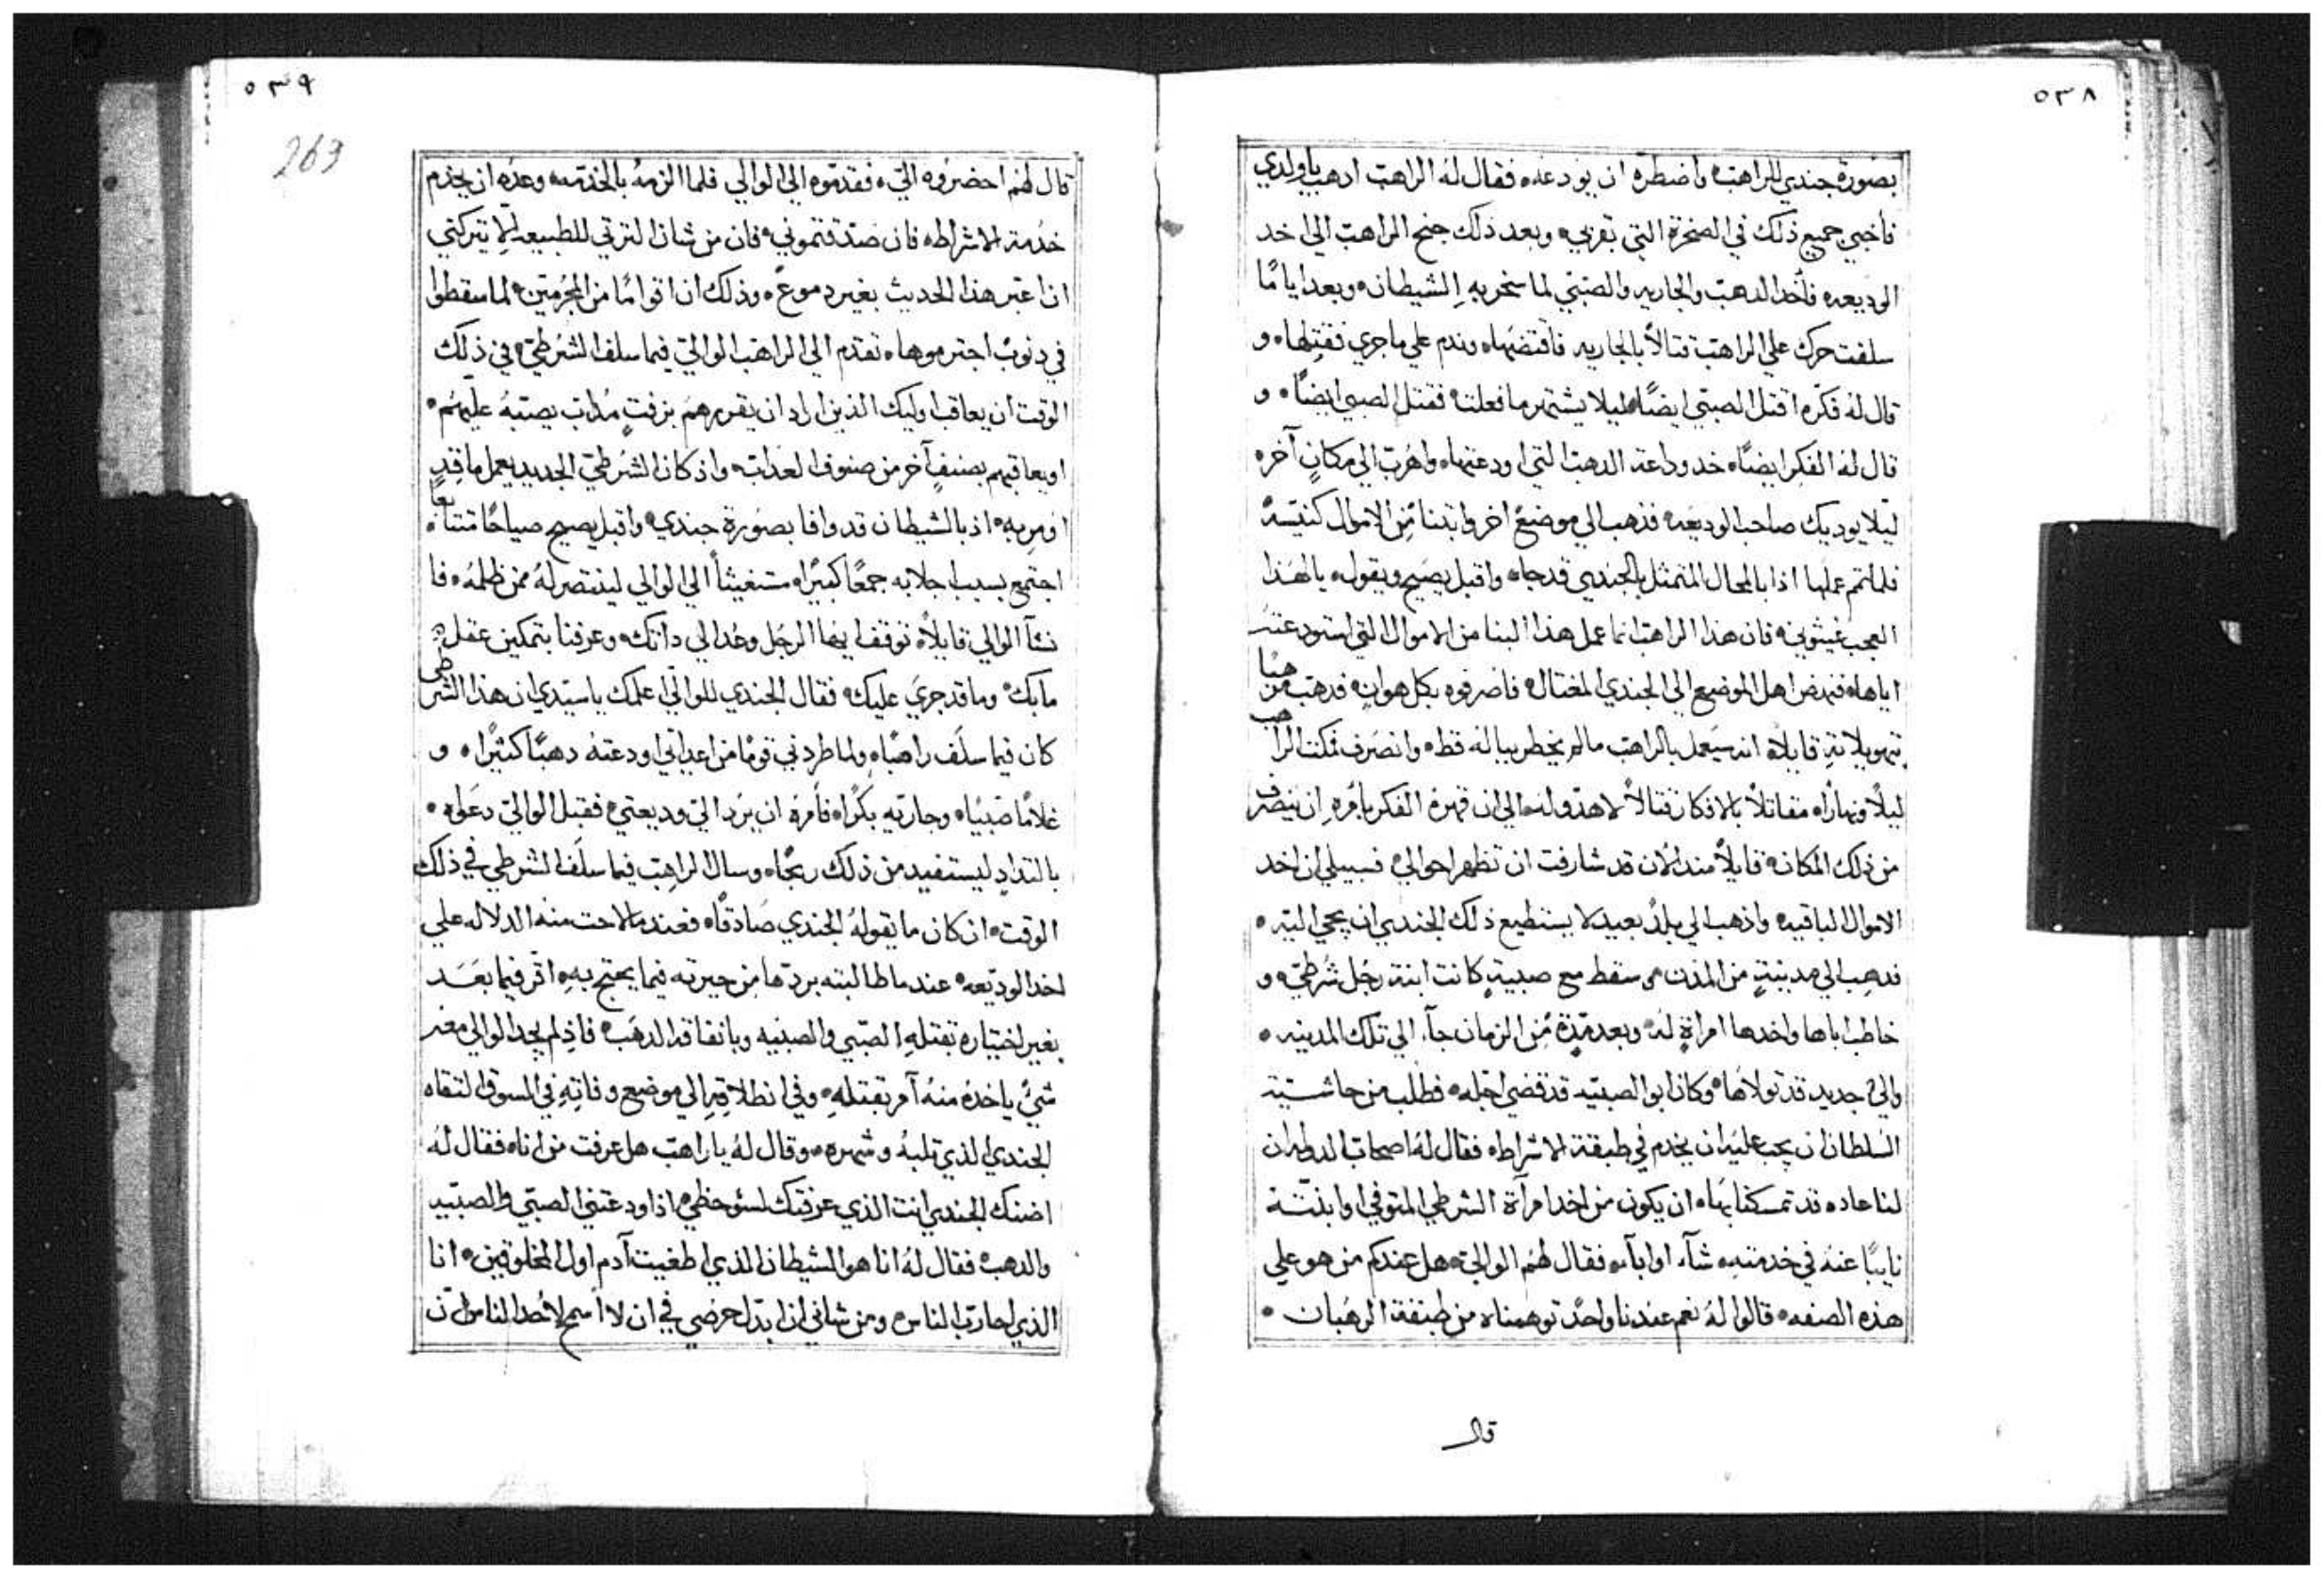 ٥٣٨
بصورة جندي للراهب واضطره ان يودعه فقال له الراهب ادهب ياولدي
فأخبي جميع ذلك في الصخرة التي بقربي وبعد ذلك جنح الراهب الي اخد
الوديعه فأخد الدهب والجاريه والصبي لما سخر به الشيطان وبعد اياما
سلفت حرك علي الراهب قتالاً بالجاريه فافتضها وندم علي ماجري فقتلها و
قال له فكره اقتل الصبي ايضاً ليلا يشتهر ما فعلته فقتل الصبي ايضاً و
قال له الفكر ايضاً خد وداعة الدهب التي اودعتها واهرب الي مكانٍ آخر
ليلا يوديك صاحب الوديعه فذهب الي موضع اخر وابتنا من الاموال كنيسة
فلما تم عملها اذا بالمحال المتمثل بالجندي قد جا واقبل يصيح ويقول يا لهذا
العجب غيثوني فان هذا الراهب انما عمل هذا البنا من الاموال التي استودعته
اياها فنهض اهل الموضع الي الجندي المغتال فاصرفوه بكل هوان فدهب مرهبا
بتهويلاته قايلاً انه سيعمل بالراهب مالم يخطر بباله قط وانصرف فمكث الراهب
ليلاً ونهاراً مقاتلاً بالافكار قتالاً لا هدو له الي ان قهره الفكر يامره ان ينصرف
من ذلك المكان قايلاً مند الان قد شارفت ان تظهر احوالي فسبيلي ان اخد
الاموال الباقيه واذهب الي بلد بعيد لا يستطيع ذلك الجندي ان يجي اليه
فدهب الي مدينةٍ من المدن سقط مع صبيةٍ كانت ابنة رجل شرطي و
خاطب اباها واخدها امراةٍ له وبعد مدة من الزمان جآء الي تلك المدينه
والي جديد قد تولاها وكان ابو الصبيه قد قضي اجله فطلب من حاشية
السلطان ان يجب عليه ان يخدم في طبقة الاشراط فقال له اصحاب الدوله ان
لنا عاده قد تمسكنا بها ان يكون من اخد امرآة الشرطي المتوفي او ابنته
نايبًا عنه في خدمته شآء او ابآء فقال لهم الوالي هل عندكم من هو علي
هذه الصفه قالوا له نعم عندنا واحدً توهمناه من طبقة الرهبان
قال
٥٣٩
263
قال لهم احضروه الي فقدموه الي الوالي فلما الزمه بالخدمه وعده ان يخدم
خدمة الاشراط فان صدقتموني فان من شان الترتي للطبيعه لا يتركني
ان اعتبر هذا الحديث بغير دموع وذلك ان اقوامًا من المجرمين لما سقطوا
في دنوب اجترموها تقدم الي الراهب الوالي فيما سلف الشرطي في ذلك
الوقت ان يعاقب اوليك الذين اراد ان يقررهم بزفتٍ مداب يصببه عليهم
او يعاقبهم بصنفٍ آخر من صنوف العداب واذ كان الشرطي الجديد يعمل ما قد
اومر به اذ بالشيطان قد وافا بصورة جندي واقبل يصيح صياحًا متتابعًا
اجتمع بسبب اجلابه جمعًا كبيرًا مستغيثاً الي الوالي لينتصر له ممن ظلمه فا
نثآ الوالي قايلاً توقف ايها الرجل وعد الي داتك وعرفنا بتمكين عقل
مابك وما قد جري عليك فقال الجندي للوالي اعلمك يا سيدي ان هذا الشرطي
كان فيما سلف راهبًا ولما طردني قومًا من اعداي اودعته دهبًا كثيرًا و
غلامًا صبيًا وجاريه بكرًا فأمره ان يرد الي وديعتي فقبل الوالي دعواه
بالتداد ليستفيد من ذلك ربحًا وسال الراهب فيما سلف الشرطي في ذلك
الوقت ان كان ما يقوله الجندي صادقًا فعند مالاحت منه الدلاله علي
اخد الوديعه عند ما طالبته بردها من حيرته فيما يحتج به اقر فيما بعد
بغير اختياره بقتله الصبي والصبيه وبانفاقه الدهب فاذ لم يجد الوالي معه
شئ ياخده منه آمر بقتله وفي انطلاقه الي موضع وفاته في السوق التقاه
الجندي الذي ثلبه وشهره وقال له يا راهب هل عرفت من انا فقال له
اضنك الجندي انت الذي عرفتك لسؤ حظي اذا اودعتني الصبي والصبيه
والدهب فقال له انا هو الشيطان الذي اطغيت آدم اول المخلوقين انا
الذي احارب الناس ومن شاني ان ابتدل حرضي في ان لا اسمح لاحد الناس ان